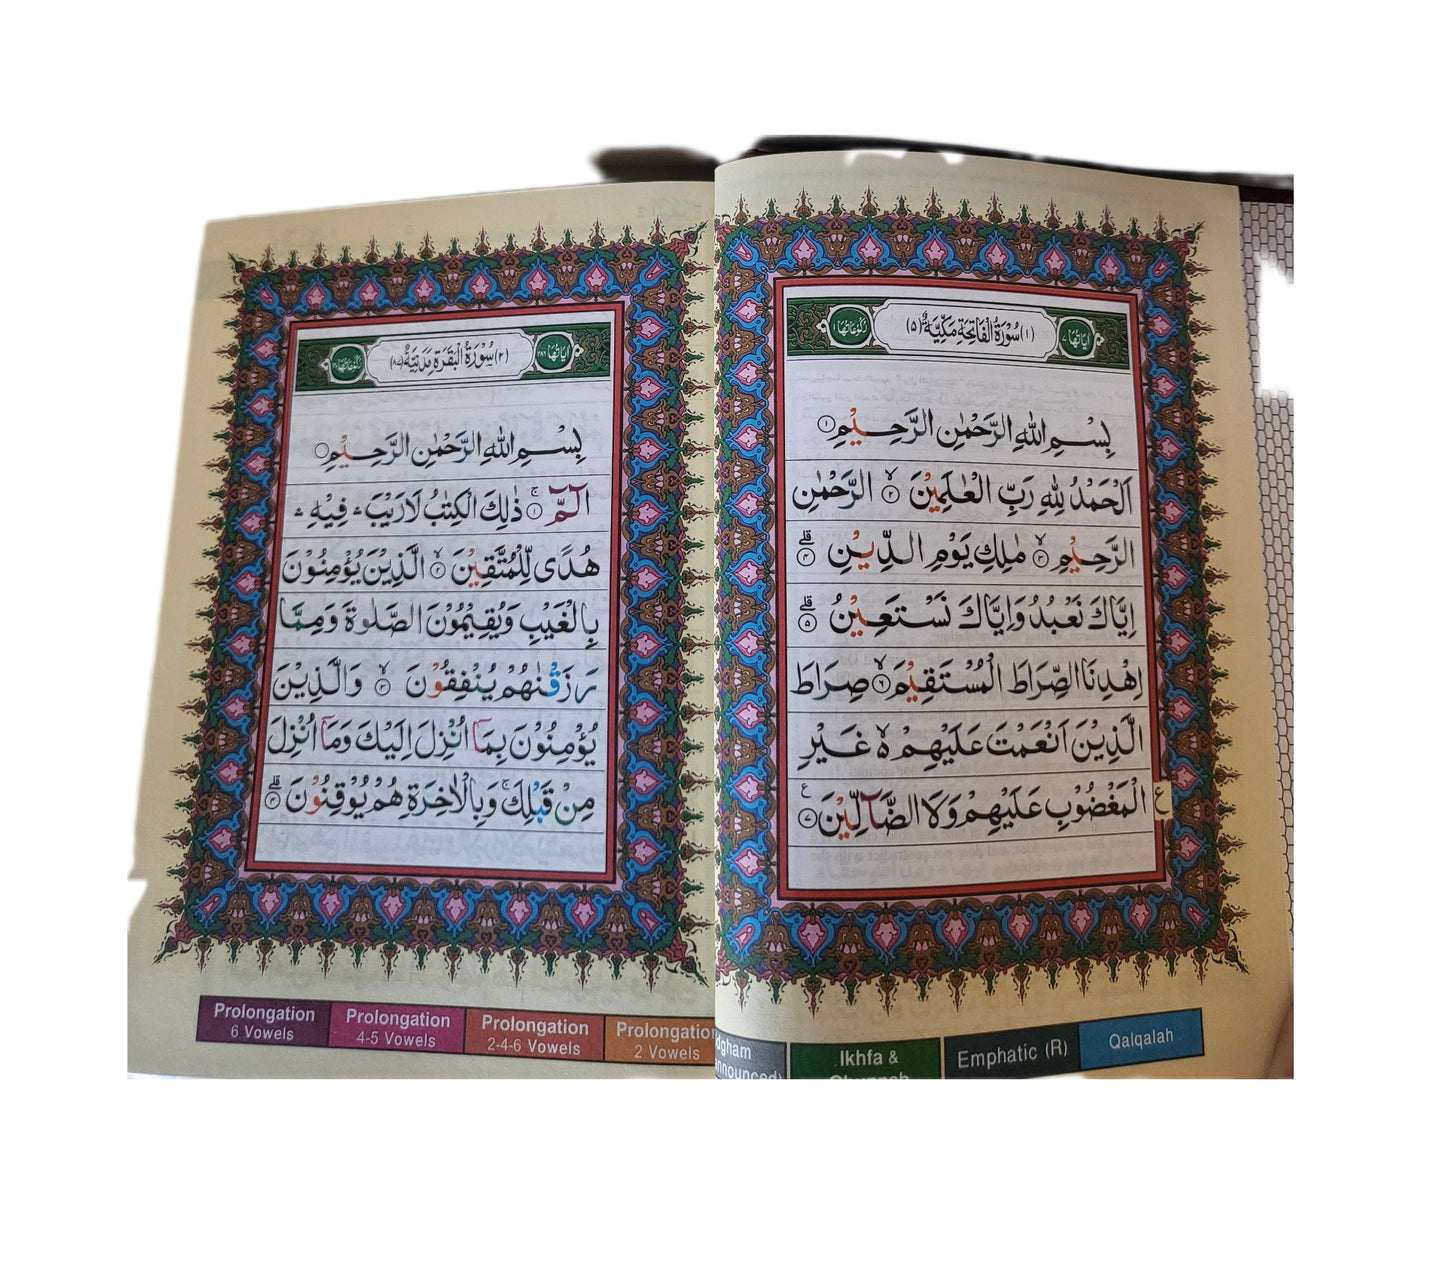 اٰيَاتُهَا ٧
(١) سُوْرَةُ الْفَاتِحَةِ مَكِّيَّةٌ (٥)
رُكُوْعَاتُهَا ١
بِسْمِ اللّٰهِ الرَّحْمٰنِ الرَّحِيْمِ ١
اَلْحَمْدُ لِلّٰهِ رَبِّ الْعٰلَمِيْنَ ۙ ٢ الرَّحْمٰنِ
الرَّحِيْمِ ۙ ٣ مٰلِكِ يَوْمِ الدِّيْنِ ؕ ٤
اِيَّاكَ نَعْبُدُ وَاِيَّاكَ نَسْتَعِيْنُ ؕ ٥
اِهْدِنَا الصِّرَاطَ الْمُسْتَقِيْمَ ۙ ٦ صِرَاطَ
الَّذِيْنَ اَنْعَمْتَ عَلَيْهِمْ ۙ ە غَيْرِ
الْمَغْضُوْبِ عَلَيْهِمْ وَلَا الضَّآلِّيْنَ ٧ ع
ع
اٰيَاتُهَا ٢٨٦
(٢) سُوْرَةُ الْبَقَرَةِ مَدَنِيَّةٌ (٨٧)
بِسْمِ اللّٰهِ الرَّحْمٰنِ الرَّحِيْمِ
الٓمّٓ ۚ ١ ذٰلِكَ الْكِتٰبُ لَا رَيْبَ ۛ فِيْهِ ۛ
هُدًى لِّلْمُتَّقِيْنَ ۙ ٢ الَّذِيْنَ يُؤْمِنُوْنَ
بِالْغَيْبِ وَيُقِيْمُوْنَ الصَّلٰوةَ وَمِمَّا
رَزَقْنٰهُمْ يُنْفِقُوْنَ ۙ ٣ وَالَّذِيْنَ
يُؤْمِنُوْنَ بِمَآ اُنْزِلَ اِلَيْكَ وَمَآ اُنْزِلَ
مِنْ قَبْلِكَ ۚ وَبِالْاٰخِرَةِ هُمْ يُوْقِنُوْنَ ؕ ٤
Prolongation
6 Vowels
Prolongation
4-5 Vowels
Prolongation
2-4-6 Vowels
Prolongation
2 Vowels
Ikhfa &
Emphatic (R)
Qalqalah